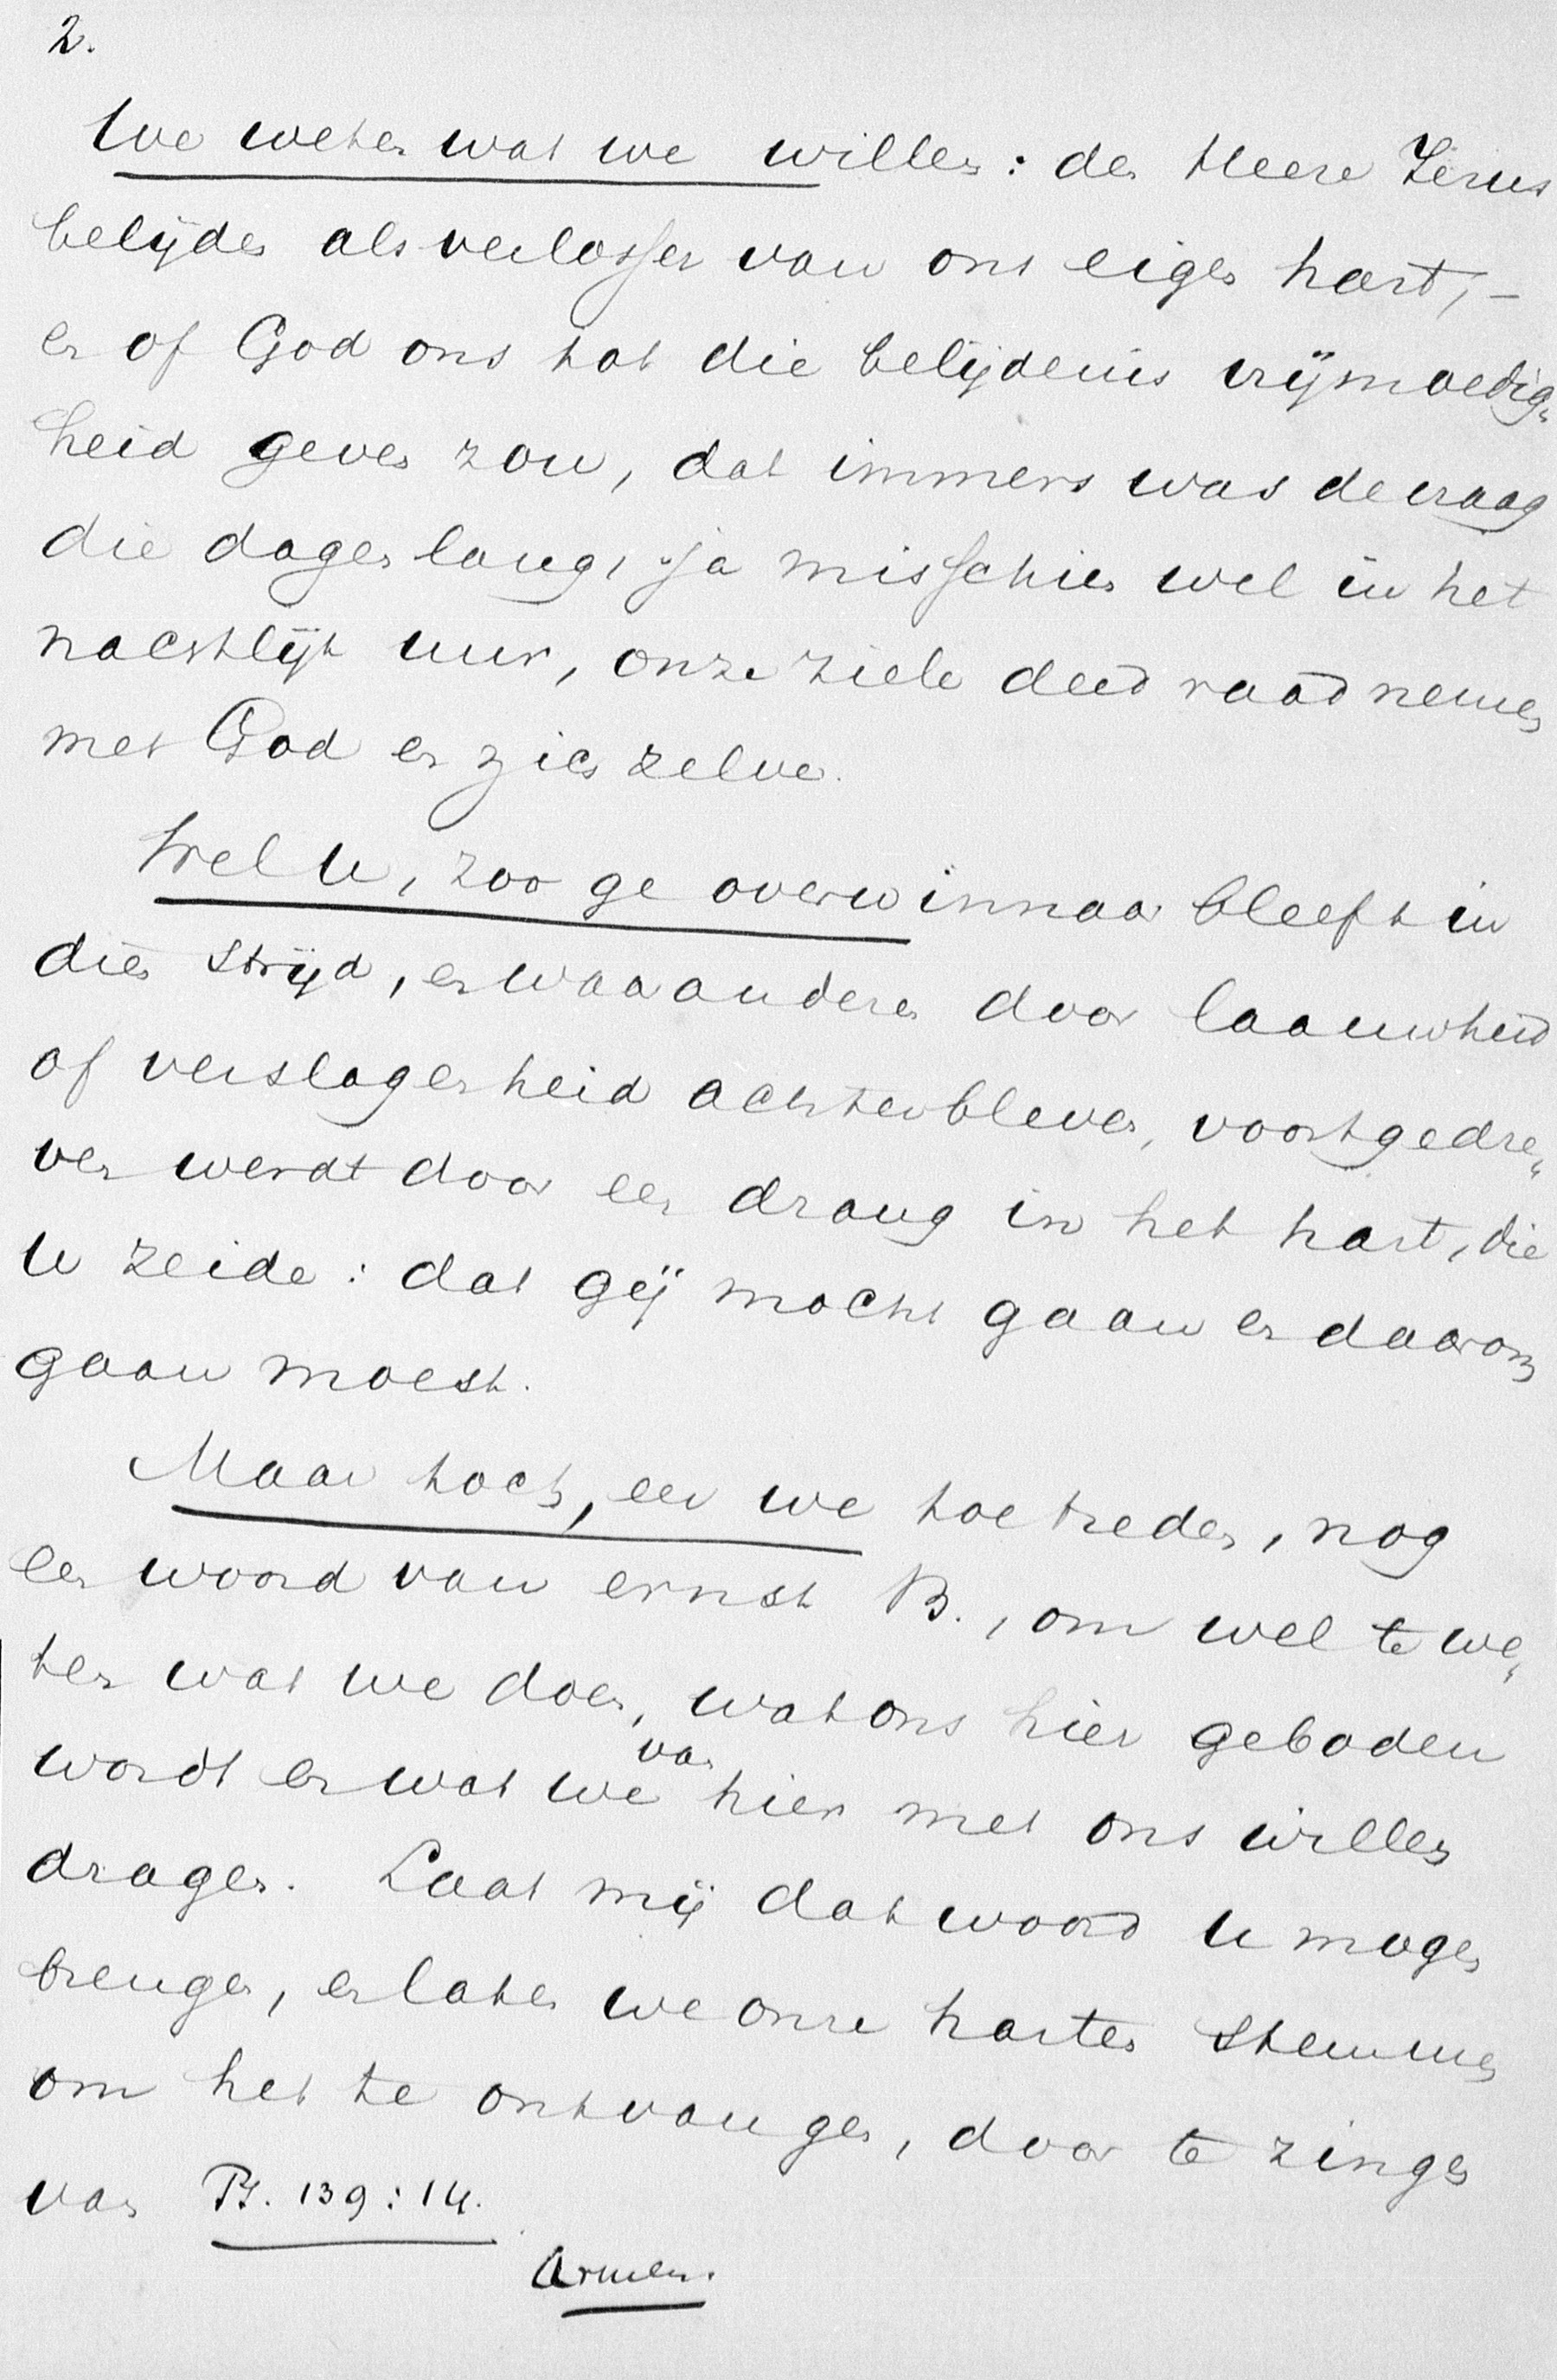 2.
We weten wat we willen: den Heere Jezus
belijden als verlosser van ons eigen hart, –
en of God ons tot die belijdenis vrijmoedig„
heid geven zou, dat immers was de vraag
die dagen lang, ja misschien wel in het
nachtlijk uur, onze ziele deed raadnemen
met God en zich zelve.
Wel u, zoo ge overwinnaar bleeft in
dien strijd, en waar anderen door laauwheid
of verslagenheid achterbleven, voortgedre„
ven werdt door een drang in het hart, die
u zeide: dat gij mocht gaan en daarom
gaan moest.
Maar toch, eer we toetreden, nog
een woord van ernst B., om wel te we„
ten wat we doen, wat ons hier geboden
wordt en wat we van hier met ons willen
dragen. Laat mij dat woord u mogen
brengen, en laten we onze harten stemmen
om het te ontvangen, door te zingen
van Ps. 139:14.
Armen.